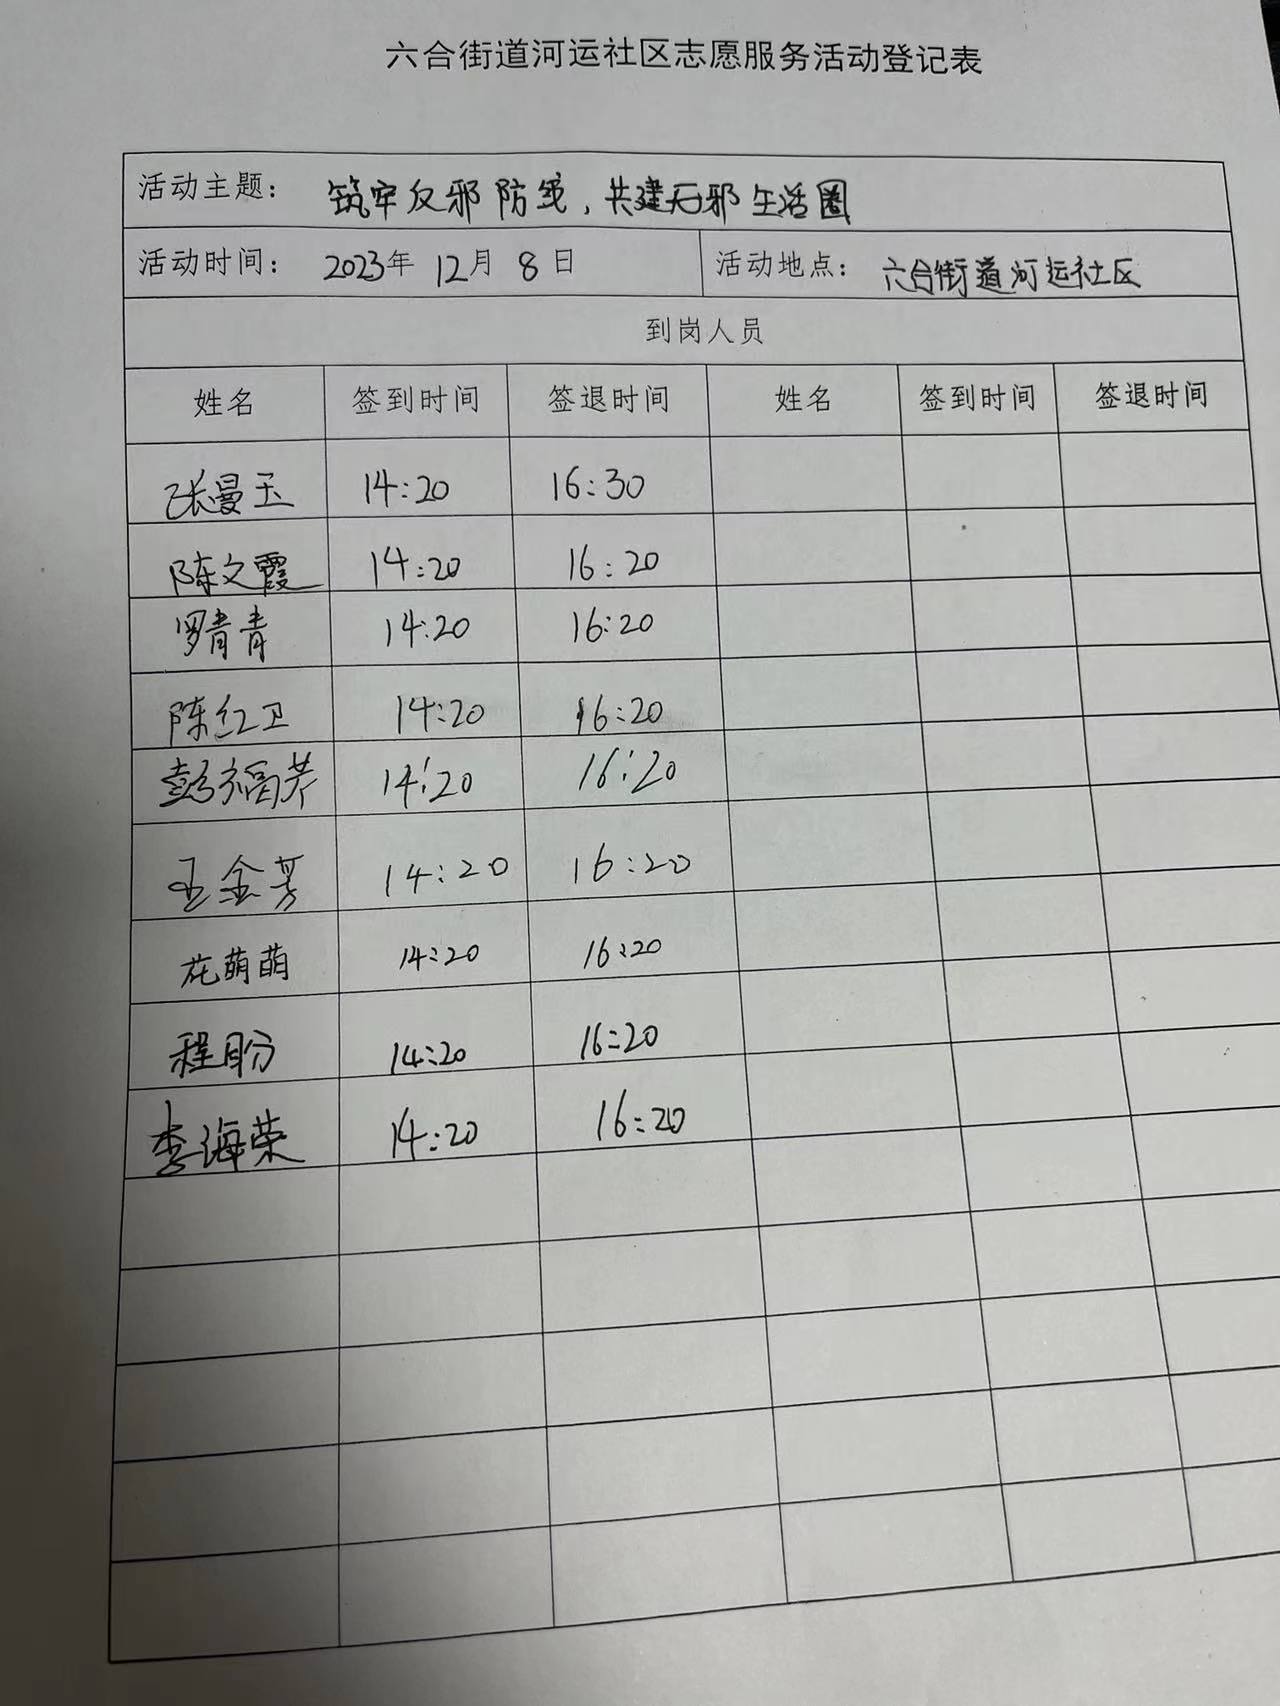 六合街道河运社区志愿服务活动登记表
活动主题： 筑牢反邪防线，共建无邪生活圈
活动时间： 2023年 12月 8日 活动地点： 六合街道河运社区
到岗人员
姓名 签到时间 签退时间 姓名 签到时间 签退时间
张曼玉 14:20 16:30
陈文霞 14:20 16:20
罗青青 14:20 16:20
陈红卫 14:20 16:20
14:20 16:20
王金芳 14:20 16:20
花萌萌 14:20 16:20
程盼 14:20 16:20
李海荣 14:20 16:20